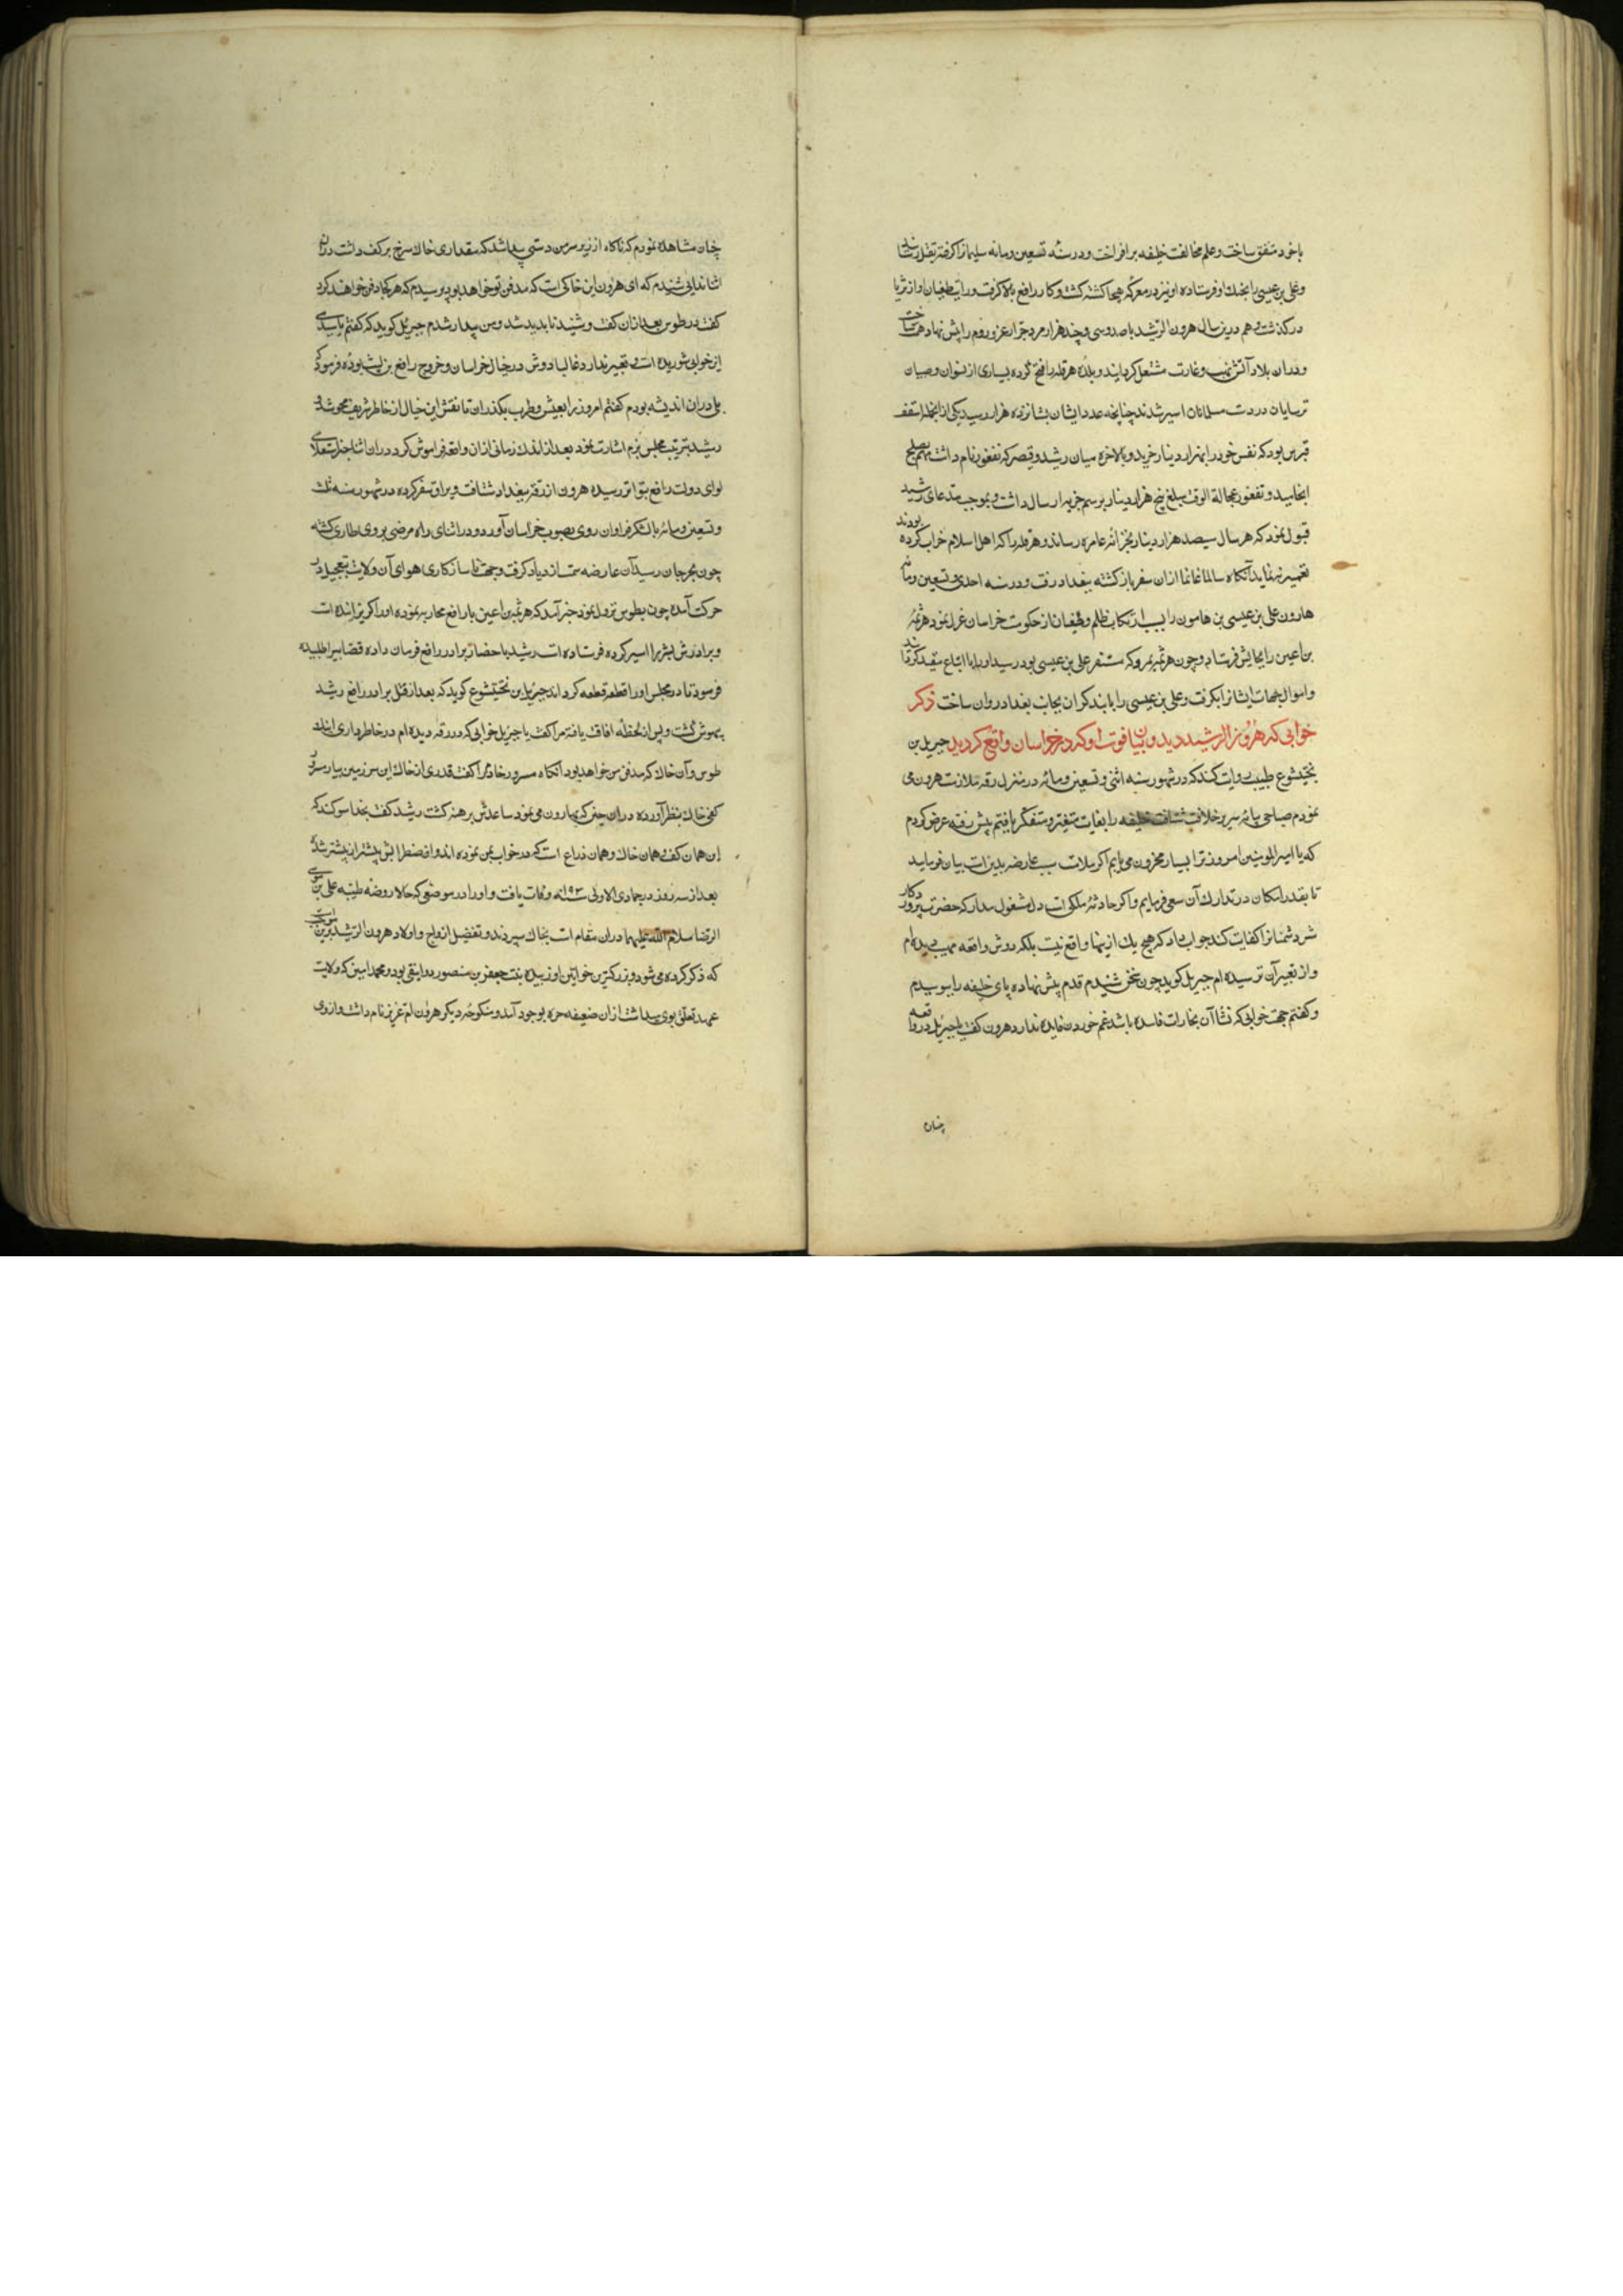 باخود متفق ساخت و علم مخالفت خلیفه برافراخت و در سنه تسعین ومائه سلیمانرا کرفته بقتل رسانید
و علی بن عیسی را بجنك او فرستاده او نیز در معرکه هیجا کشته کشت و کار رافع بالا کرفت و رایت طغیان او از ثریا
در کذشت و هم درین سال هرون الرشید با صد و سی و چند هزار مرد جرار عزو روم را پیش نهاد همت ساخت
و دران بلاد آتش نهب و غارت مشتعل کردانید و بلده هرقله را فتح کرده بسیاری از نسوان و صبیان
ترسایان در دست مسلمانان اسیر شدند چنانچه عدد ایشان بشانزده هزار رسید یکی ازانجمله اسقف
قبرس بود که نفس خود را بهزار دینار خرید و بالاخره میان رشید و قیصر که نقفور نام داشت مهم بصلح
انجامید و نقفور عجالة الوقت مبلغ پنج هزار دینار برسم جزیه ارسال داشت و بموجب مدعای رشید
قبول نمود که هر سال سیصد هزار دینار بخزانه عامره رساند و هرقله را که اهل اسلام خراب کرده بودند
تعمیر ننماید آنکاه سالما غانما ازان سفر باز کشته ببغداد رفت و در سنه احدی و تسعین ومائه
هارون علی بن عیسی بن هامون را بسبب ارتکاب ظلم و طغیان از حکومت خراسان عزل نمود هرثمه
بن اعین را بجایش فرستاد و چون هرثمه بمرو که مستقر علی بن عیسی بود رسید او را با اتباع مقید کردانید
و اموال و جهات ایشانرا بکرفت و علی بن عیسی را بابند کران بجانب بغداد روان ساخت ذکر
خوابی که هرون الرشید دید و بیان فوت او که در خراسان واقع کردید جبریل بن
بختیشوع طبیب روایت کند که در شهور سنه اثنی و تسعین ومائه در منزل رقه ملازمت هرون می
نمودم صباحی بپایه سریر خلافت شتافته خلیفه را بغایت متغیر و متفکر یافتم پیش رفته عرض کردم
که یا امیر المومنین امروز ترا بسیار محزون می یابم اکر ملالت بسبب عارضه بدنیست بیان فرماید
تا بقدر امکان در تدارك آن سعی نمایم و اکر حادثه ملکی است دل مشغول مدار که حضرت پروردکار
شر دشمنانرا کفایت کند جواب داد که هیچ یك ازینها واقع نیست بلکه دوش واقعه مهیب دیده ام
و از تعبیر آن ترسیده ام جبریل کوید چون این سخن شنیدم قدم پیش نهاده پای خلیفه را ببوسیدم
و کفتم جهت خوابی که منشا آن بخارات فاسده باشد غم خوردن فایده ندارد هرون کفت یا جبریل در واقعه
چنان
چنان مشاهده نمودم که ناکاه از زیر سر من دستی پیدا شد که مقداری خاك سرخ بر کف داشت دران
اثنا ندایی شنیدم که ای هرون این خاکی است که مدفن تو خواهد بود پرسیدم که هر کجا دفن خواهند کرد
کفت در طوس بعد ازان کف و شنید ناپدید شد و من بیدار شدم جبریل کوید که کفتم یا سیدی
این خوابی شوریده است و تعبیر ندارد غالبا دوش در خیال خراسان و خروج رافع بن لیث بوده فرمود که
بلی دران اندیشه بودم کفتم امروز را بعیش و طرب بکذران تا نقش این خیال از خاطر شریف محو شود
رشید بترتیب مجلس بزم اشارت نمود بعد از اندك زمانی ازان واقعه فراموش کرد دران اثنا خبر استعلای
لوای دولت رافع بتواتر رسیده هرون از رقه ببغداد شتافت و یراق سفر کرده در شهور سنه ثلث
و تسعین ومائه با لشکر فراوان روی بصوب خراسان آورد و در اثنای راه مرضی بروی طاری کشته
چون بجرجان رسید آن عارضه سمت ازدیاد کرفت و جهت ناسازکاری هوای آن ولایت بتعجیل در
حرکت آمده چون بطوس نزول نمود خبر آمد که هرثمه بن اعین با رافع محاربه نموده او را کریزانیده است
و برادرش بشیر را اسیر کرده فرستاده است رشید باحضار برادر رافع فرمان داده قصابیرا طلبیده
فرمود تا در مجلس او را قطعه قطعه کرداند جبریل بن بختیشوع کوید که بعد از قتل برادر رافع رشید
بیهوش کشت و پس از لحظه افاقت یافته مرا کفت یا جبریل خوابی که در رقه دیده ام در خاطر داری اینك
طوس و آن خاك که مدفن من خواهد بود آنکاه مسرور خادم را کفت قدری از خاك این سرزمین بیار مسرور
کفی خاك بنظر آورده دران حین که بهارون می نمود ساعدش برهنه کشت رشید کفت بخدا سوکند که
این همان کف و همان خاك و همان ذراع است که در خواب بمن نموده اند و اضطرابش بیشتر از پیشتر شد
بعد از سه روز در جمادی الاولی سنه ١٩٣ وفات یافت و او را در موضعی که حالا روضه طیبه علی بن موسی
الرضا سلام الله علیهما دران مقام است بخاك سپردند و تفصیل ازواج و اولاد هرون الرشید برین موجبست
که ذکر کرده می شود و بزرکترین خواتین او زبیده بنت جعفر بن منصور دوانقی بود و محمد امین که ولایت
عهد تعلق بوی میداشت ازان ضعیفه حره بوجود آمد و منکوحه دیکر هرون ام عزیز نام داشت و از وی